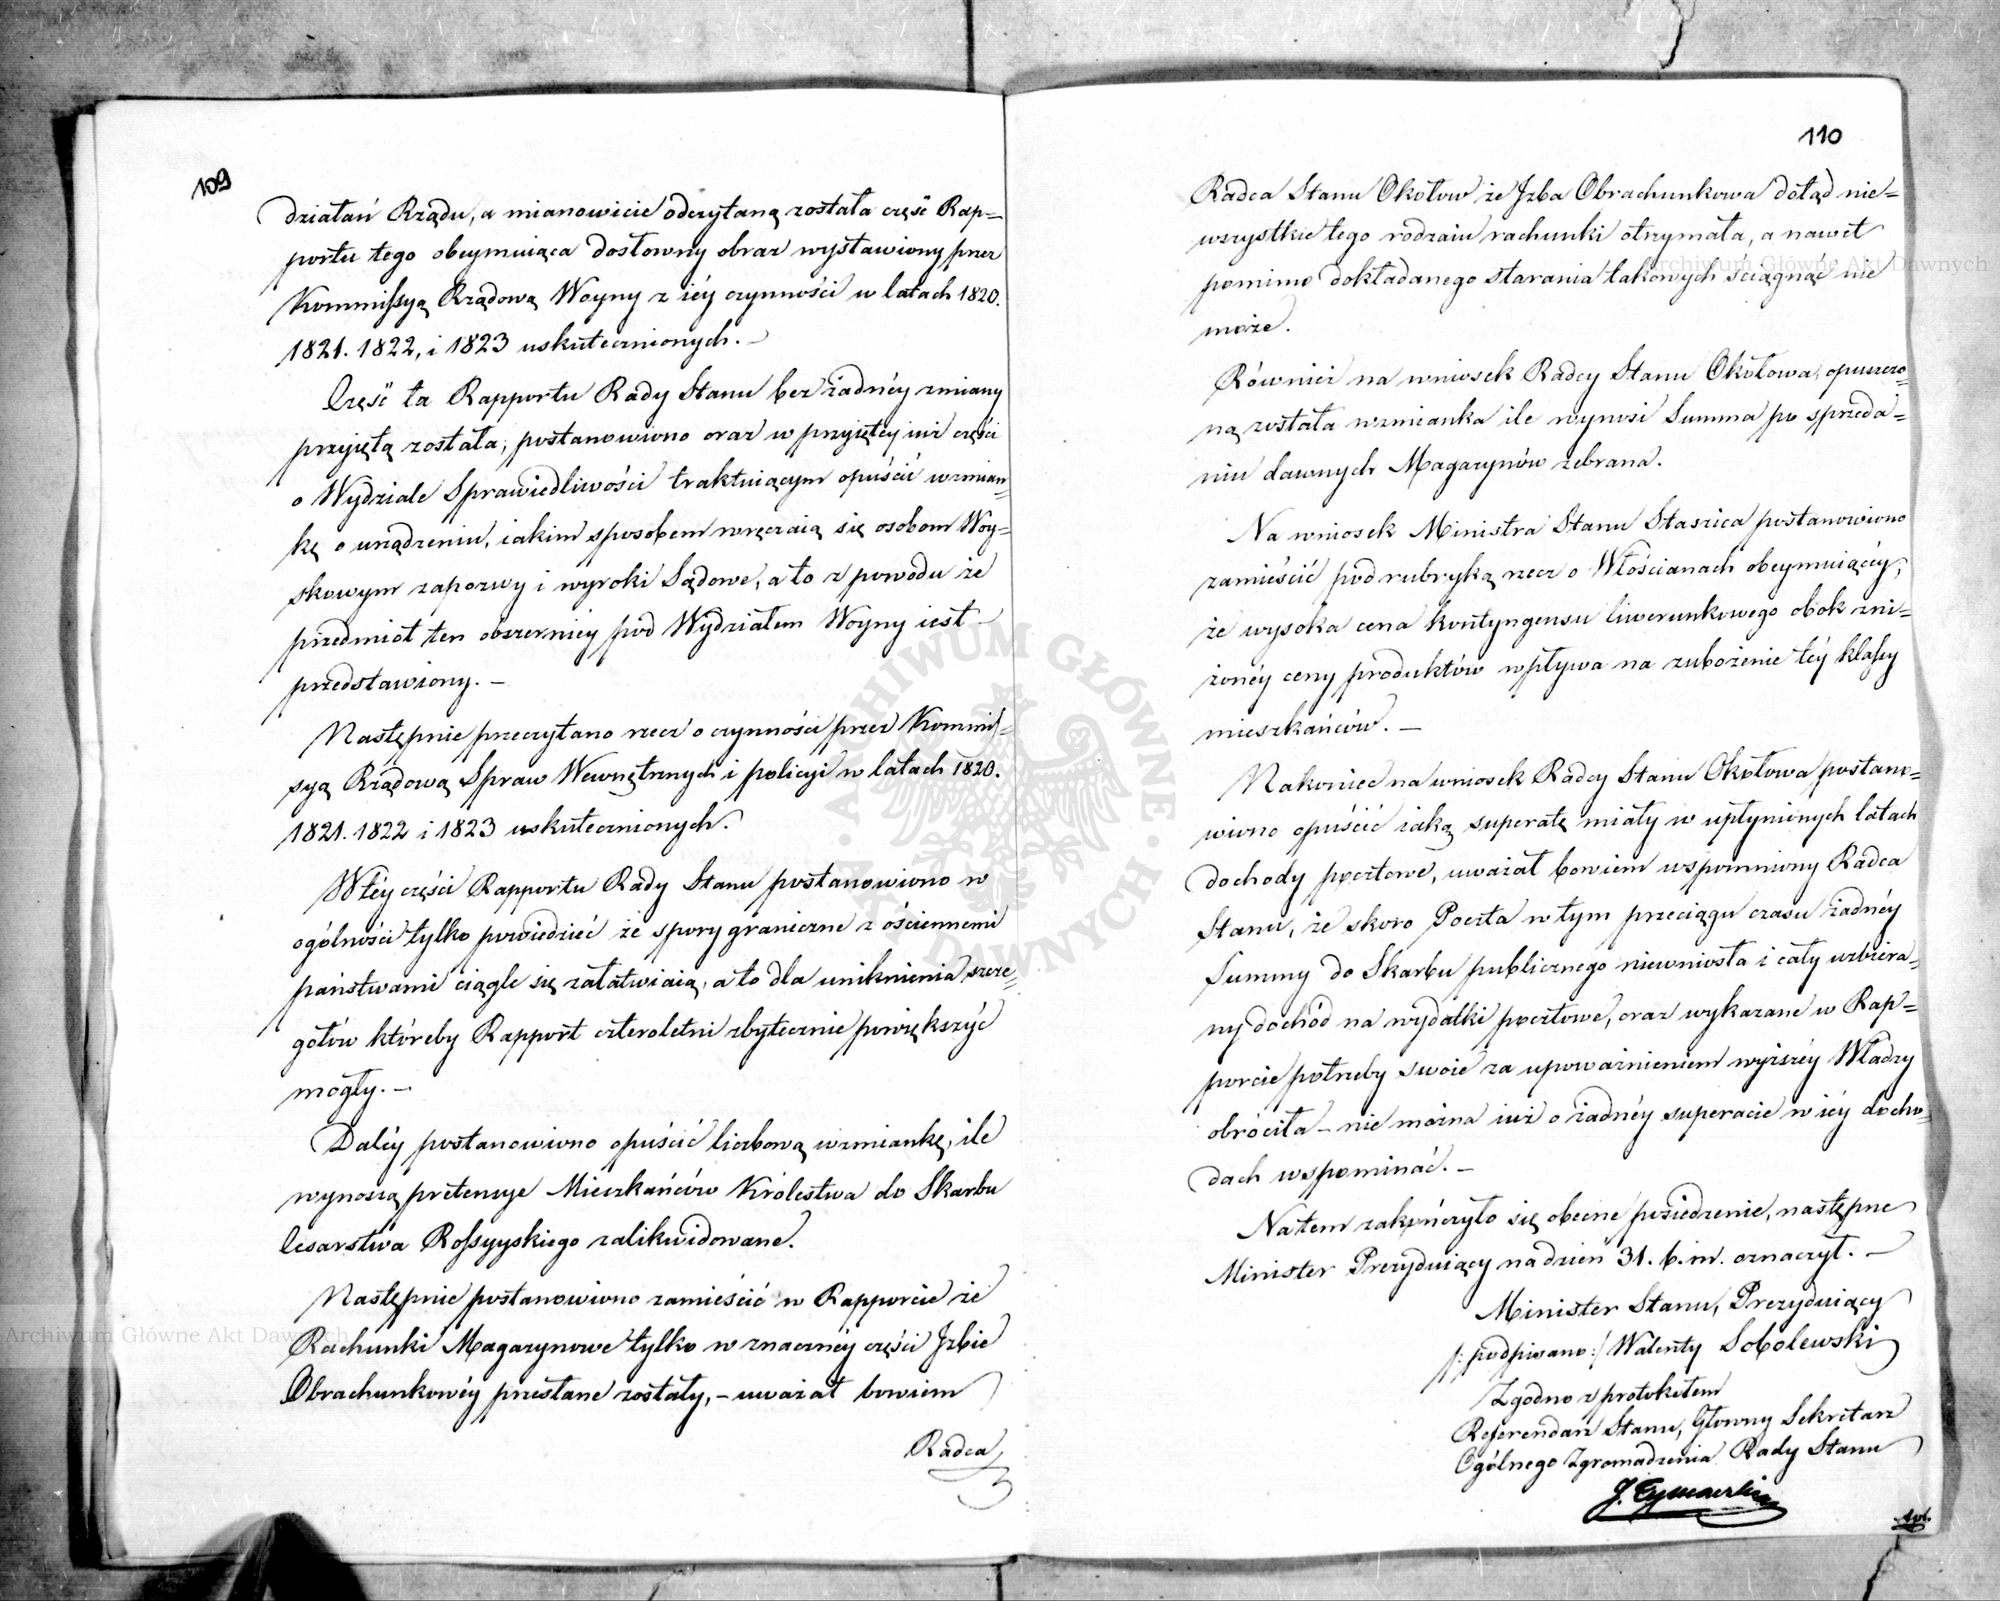 109
działań Rządu, a mianowicie odczytaną została część Rap=
portu tego obeymuiąca dosłowny obraz wystawiony przez
Kommissyą Rządową Woyny z iéy czynności w latach 1820.
1821. 1822, i 1823 uskutecznionych. –
Część ta Rapportu Rady Stanu bez żadnéy zmiany
przyiętą została, postanowiono oraz w przyiętéy iuż części
o Wydziale Sprawiedliwości traktuiącym opuścić wzmian=
kę o urządzeniu, iakim sposobem wręczaią się osobom Woy=
skowym zapozwy i wyroki Sądowe, a to z powodu że
przedmiot ten obszerniey pod Wydziałem Woyny iest –
przedstawiony. –
Następnie przeczytano rzecz o czynności przez Kommis=
syą Rządową Spraw Wewnętrznych i policyi w latach 1820.
1821. 1822 i 1823 uskutecznionych.
W téy części Rapportu Rady Stanu postanowiono w
ogólności tylko powiedzieć że spory graniczne z ościennemi
państwami ciągle się załatwiaią, a to dla uniknienia szcze=
gółów któreby Rapport czteroletni zbytecznie powiększyć
mogły. –
Daléy postanowiono opuścić liczbową wzmiankę, ile
wynoszą pretensye Mieszkańców Królestwa do Skarbu
Cesarstwa Rossyyskiego zalikwidowane.
Następnie postanowiono zamieścić w Rapporcie że
Rachunki Magazynowe tylko w znacznéy części Izbie
Obrachunkowéy przesłane zostały, – uważał bowiem
Radca
110
Radca Stanu Okołow że Izba Obrachunkowa dotąd nie=
wszystkie tego rodzaiu rachunki otrzymała, a nawet
pomimo dokładanego starania takowych ściągnąć nie
może.
Również na wniosek Radcy Stanu Okołowa, opuszczo=
ną została wzmianka ile wynosi Summa po sprzeda=
niu dawnych Magazynów zebrana.
Na wniosek Ministra Stanu Staszica postanowiono
zamieścić pod rubryką rzecz o Włościanach obeymuiącéy,
że wysoka cena kontyngensu liwerunkowego obok zni=
żonéy ceny produktów wpływa na zubożenie téy klassy
mieszkańców. –
Nakoniec na wniosek Radcy Stanu Okołowa postano=
wiono opuścić iaką superatę miały w upłynionych latach
dochody pocztowe, uważał bowiem wspomniony Radca
Stanu, że skoro Poczta w tym przeciągu czasu żadnéy
Summy do Skarbu publicznego niewniosła i cały uzbiera=
ny dochód na wydatki pocztowe, oraz wykazane w Rap=
porcie potrzeby swoie za upoważnieniem wyższéy Władzy
obróciła – nie można iuż o żadnéy superacie w iéy docho=
dach wspominać. –
Natem zakończyło się obecne posiedzenie, następne
Minister Prezyduiący na dzień 31. b. m. oznaczył. –
Minister Stanu, Prezyduiący
/: podpisano :/ Walenty Sobolewski
Zgodno z protokułem
Referendarz Stanu, Głowny Sekretarz
Ogólnego Zgromadzenia Rady Stanu
Archiwum Główne Akt Dawnych
Archiwum Główne Akt Dawnych
ARCHIWUM GŁÓWNE AKT DAWNYCH · WARSZAWA